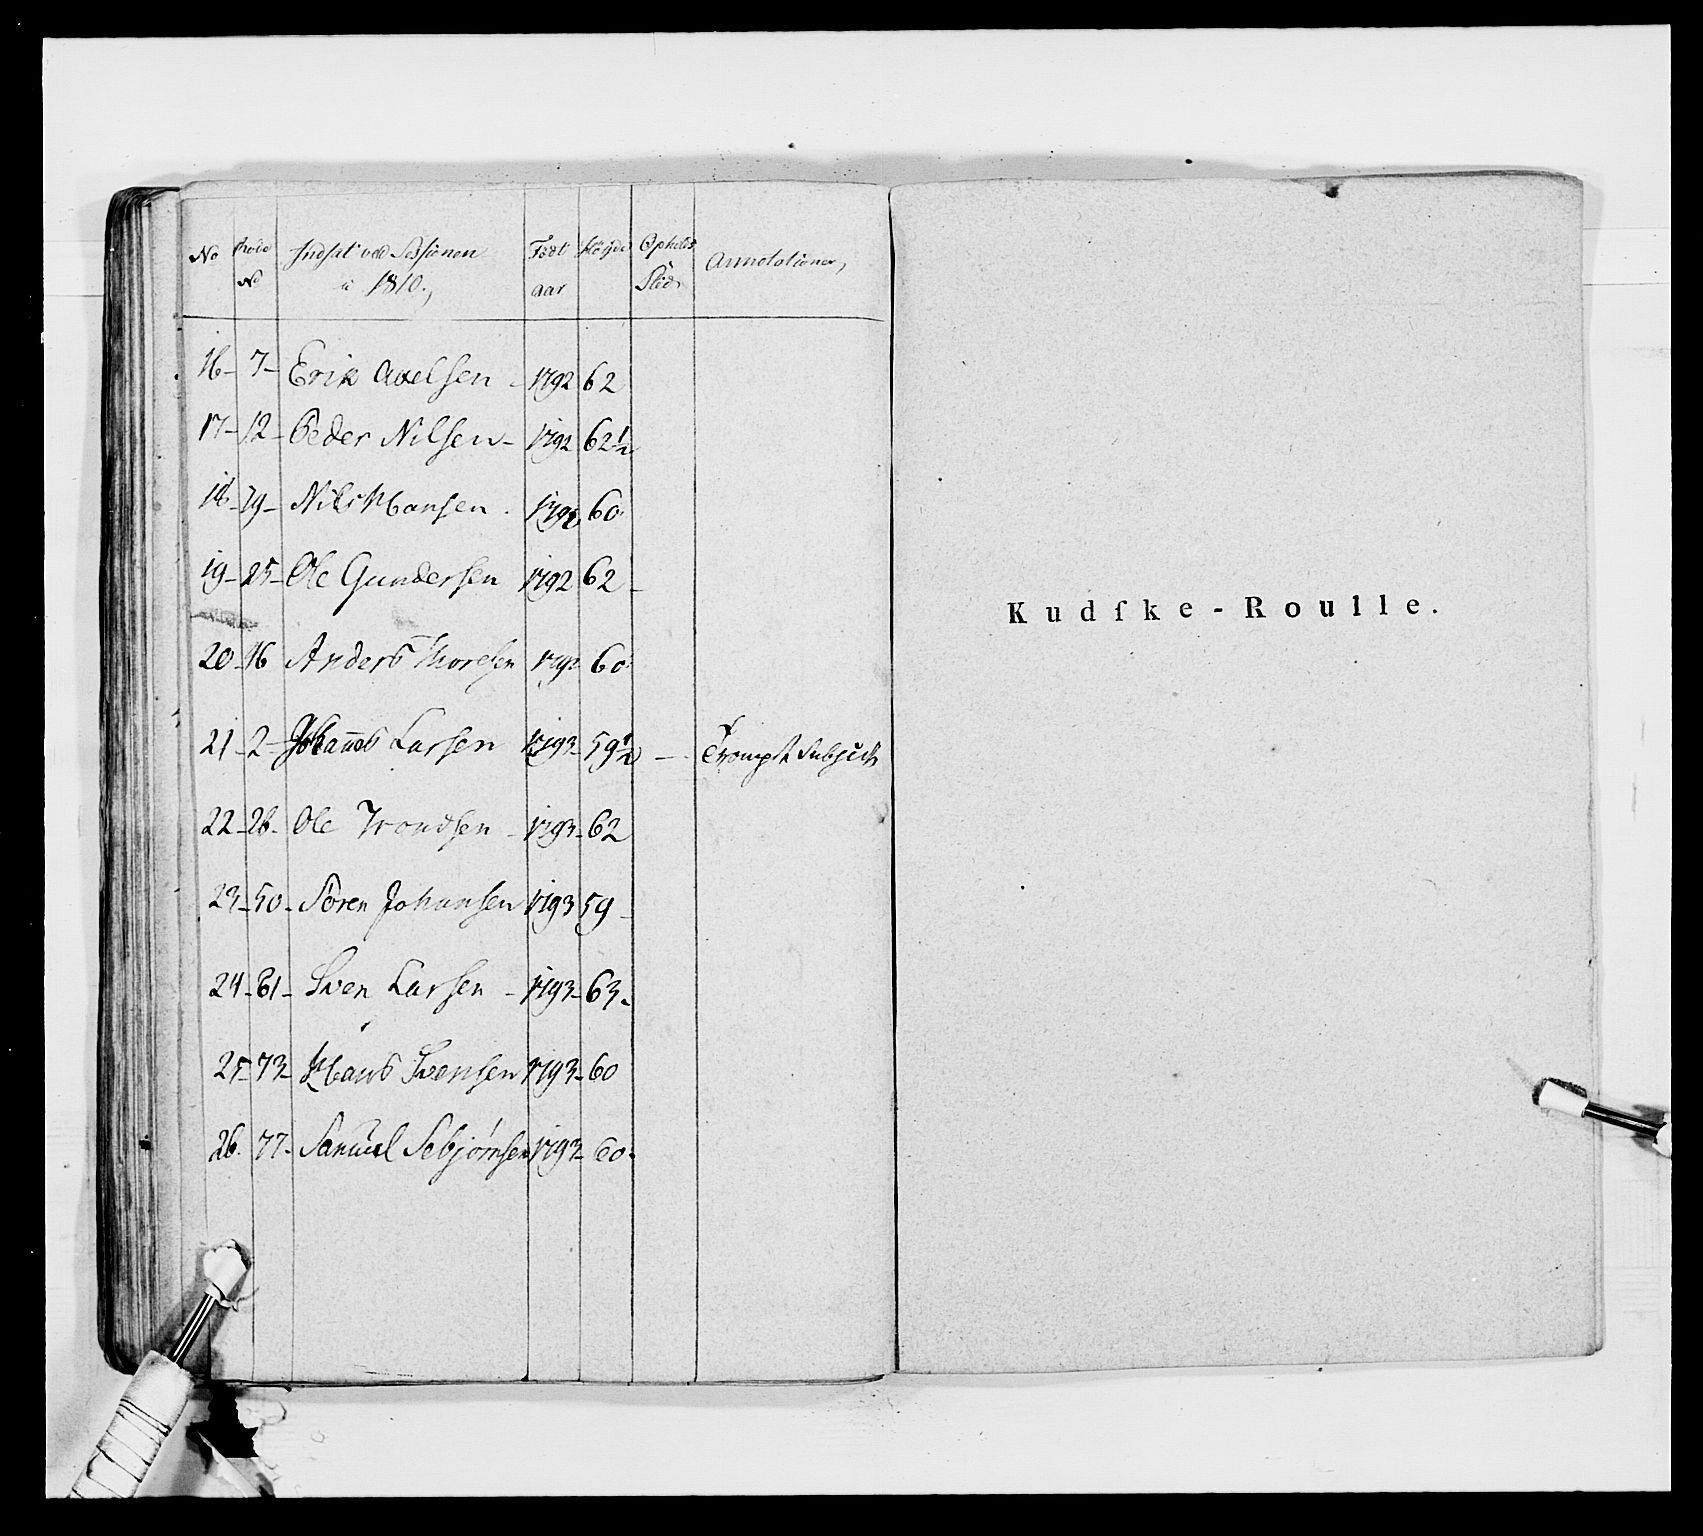 No Rode No Indsat ved Sessionen i 1810., Födt aar Höyde Opholds Stæd Annotationer,
16- 7- Erik Axelsen - 1792 62
17- 12- Peder Nilsen- 1792 62½
18- 19- Nils Hansen. 1792 60
19- 25- Ole Gundersen 1792 62 -
20- 46 Anders Thoresen 1792 60
21- 2- Johannes Larsen 1793- 59½ -
22- 26- Ole Trondsen - 1793- 62
23- 50- Sören Johansen 1793 59-
24- 61- Sven Larsen - 1793- 63-
25- 73- Hans Svensen 1793- 60
26. 77- Samuel Sebjørnsen 1793- 60.
Kudſke-Roulle.